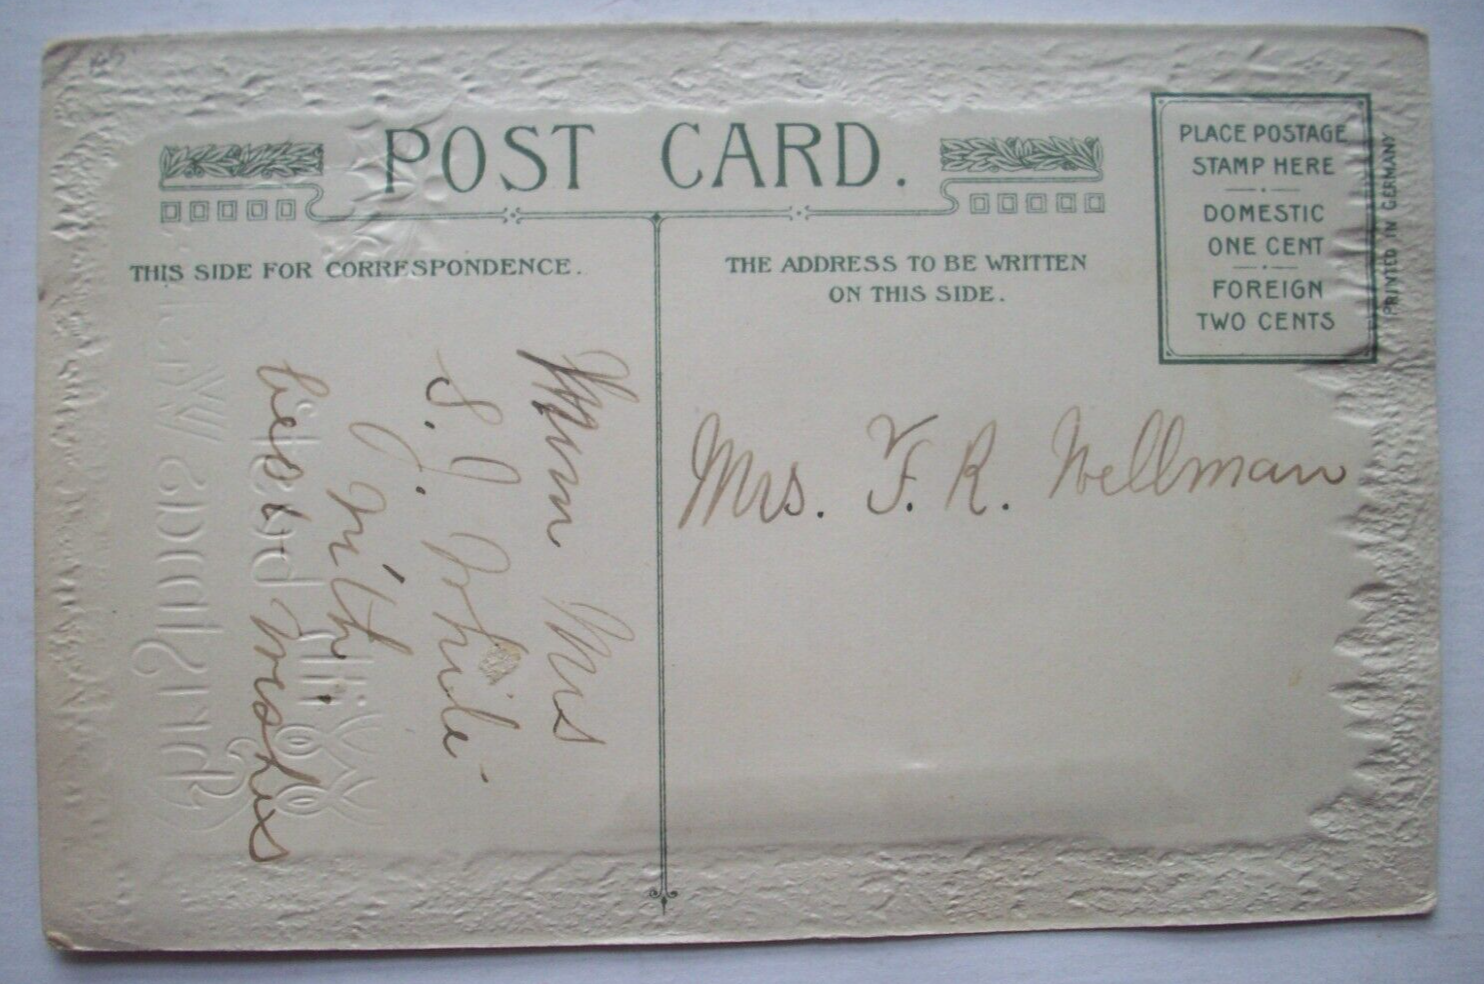 POST CARD.
THIS SIDE FOR CORRESPONDENCE.
THE ADDRESS TO BE WRITTEN
ON THIS SIDE.
PLACE POSTAGE
STAMP HERE
DOMESTIC
ONE CENT
FOREIGN
TWO CENTS
PRINTED IN GERMANY
Mrs
S. J. White
With
best wishes
Mrs. F. R. Wellman